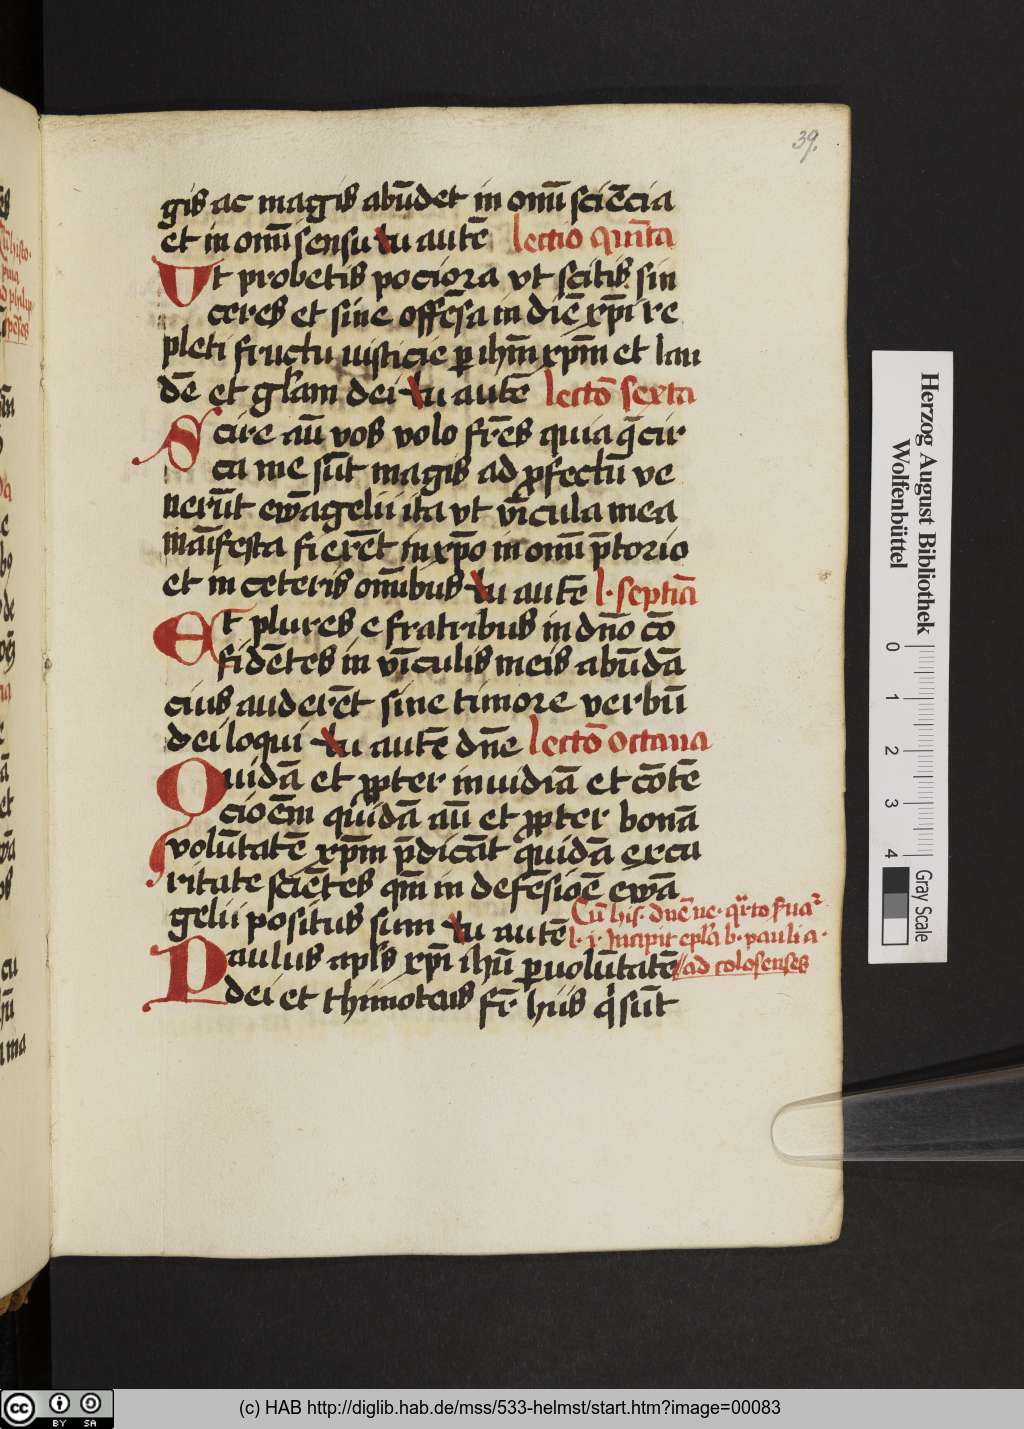 39.
gis ac magis abūdet in om̄i sciēcia
et in om̄i sensu tu autē lectio quīta
Ut probetis pociora vt scitis sin
ceres et sine offēsa in diē xp̄i re
pleti fructu iusticie p ihm̄ xpm̄ et lau
dē et glām dei tu autē lectō sexta
Scire aū vos volo fr̄es quia q̄ cir
ca me sūt magis ad ꝓfectū ve
nerūt ewāgelii ita vt vīcula mea
māifesta fierēt in xp̄o in om̄i p̄torio
et in ceteris om̄ibus tu autē l. septīa
Et plures e fratribus in dn̄o cō
fidētes in vīculis meis abūdā
cius auderēt sine timore verbū
dei loqui tu autē dn̄e lectō octaua
Quidā et ꝓpter inuidiā et cōtē
cioēm quidā aū et ꝓpter bonā
volūtatē xpm̄ p̄dicāt quidā ex ca
ritate sciētes qm̄ in defēsiōe ewā
gelii positus sum tu autē
l. i. Incipit epl̄a b. pauli a.
ad colosenses
Paulus apl̄s xp̄i ihū p volūtatē
dei et thimoteus fr̄ hiis q sūt
Herzog August Bibliothek
Wolfenbüttel
0 1 2 3 4
Gray Scale
cc BY SA
(c) HAB http://diglib.hab.de/mss/533-helmst/start.htm?image=00083